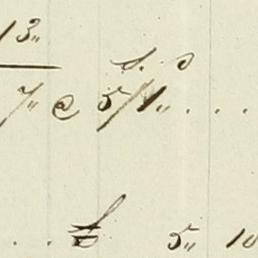 13"
s. d
7" @ 5/1" . . .
. . £ 5" 10